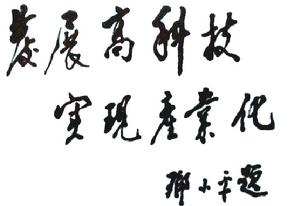 發展高科技
实现產業化
鄧小平題